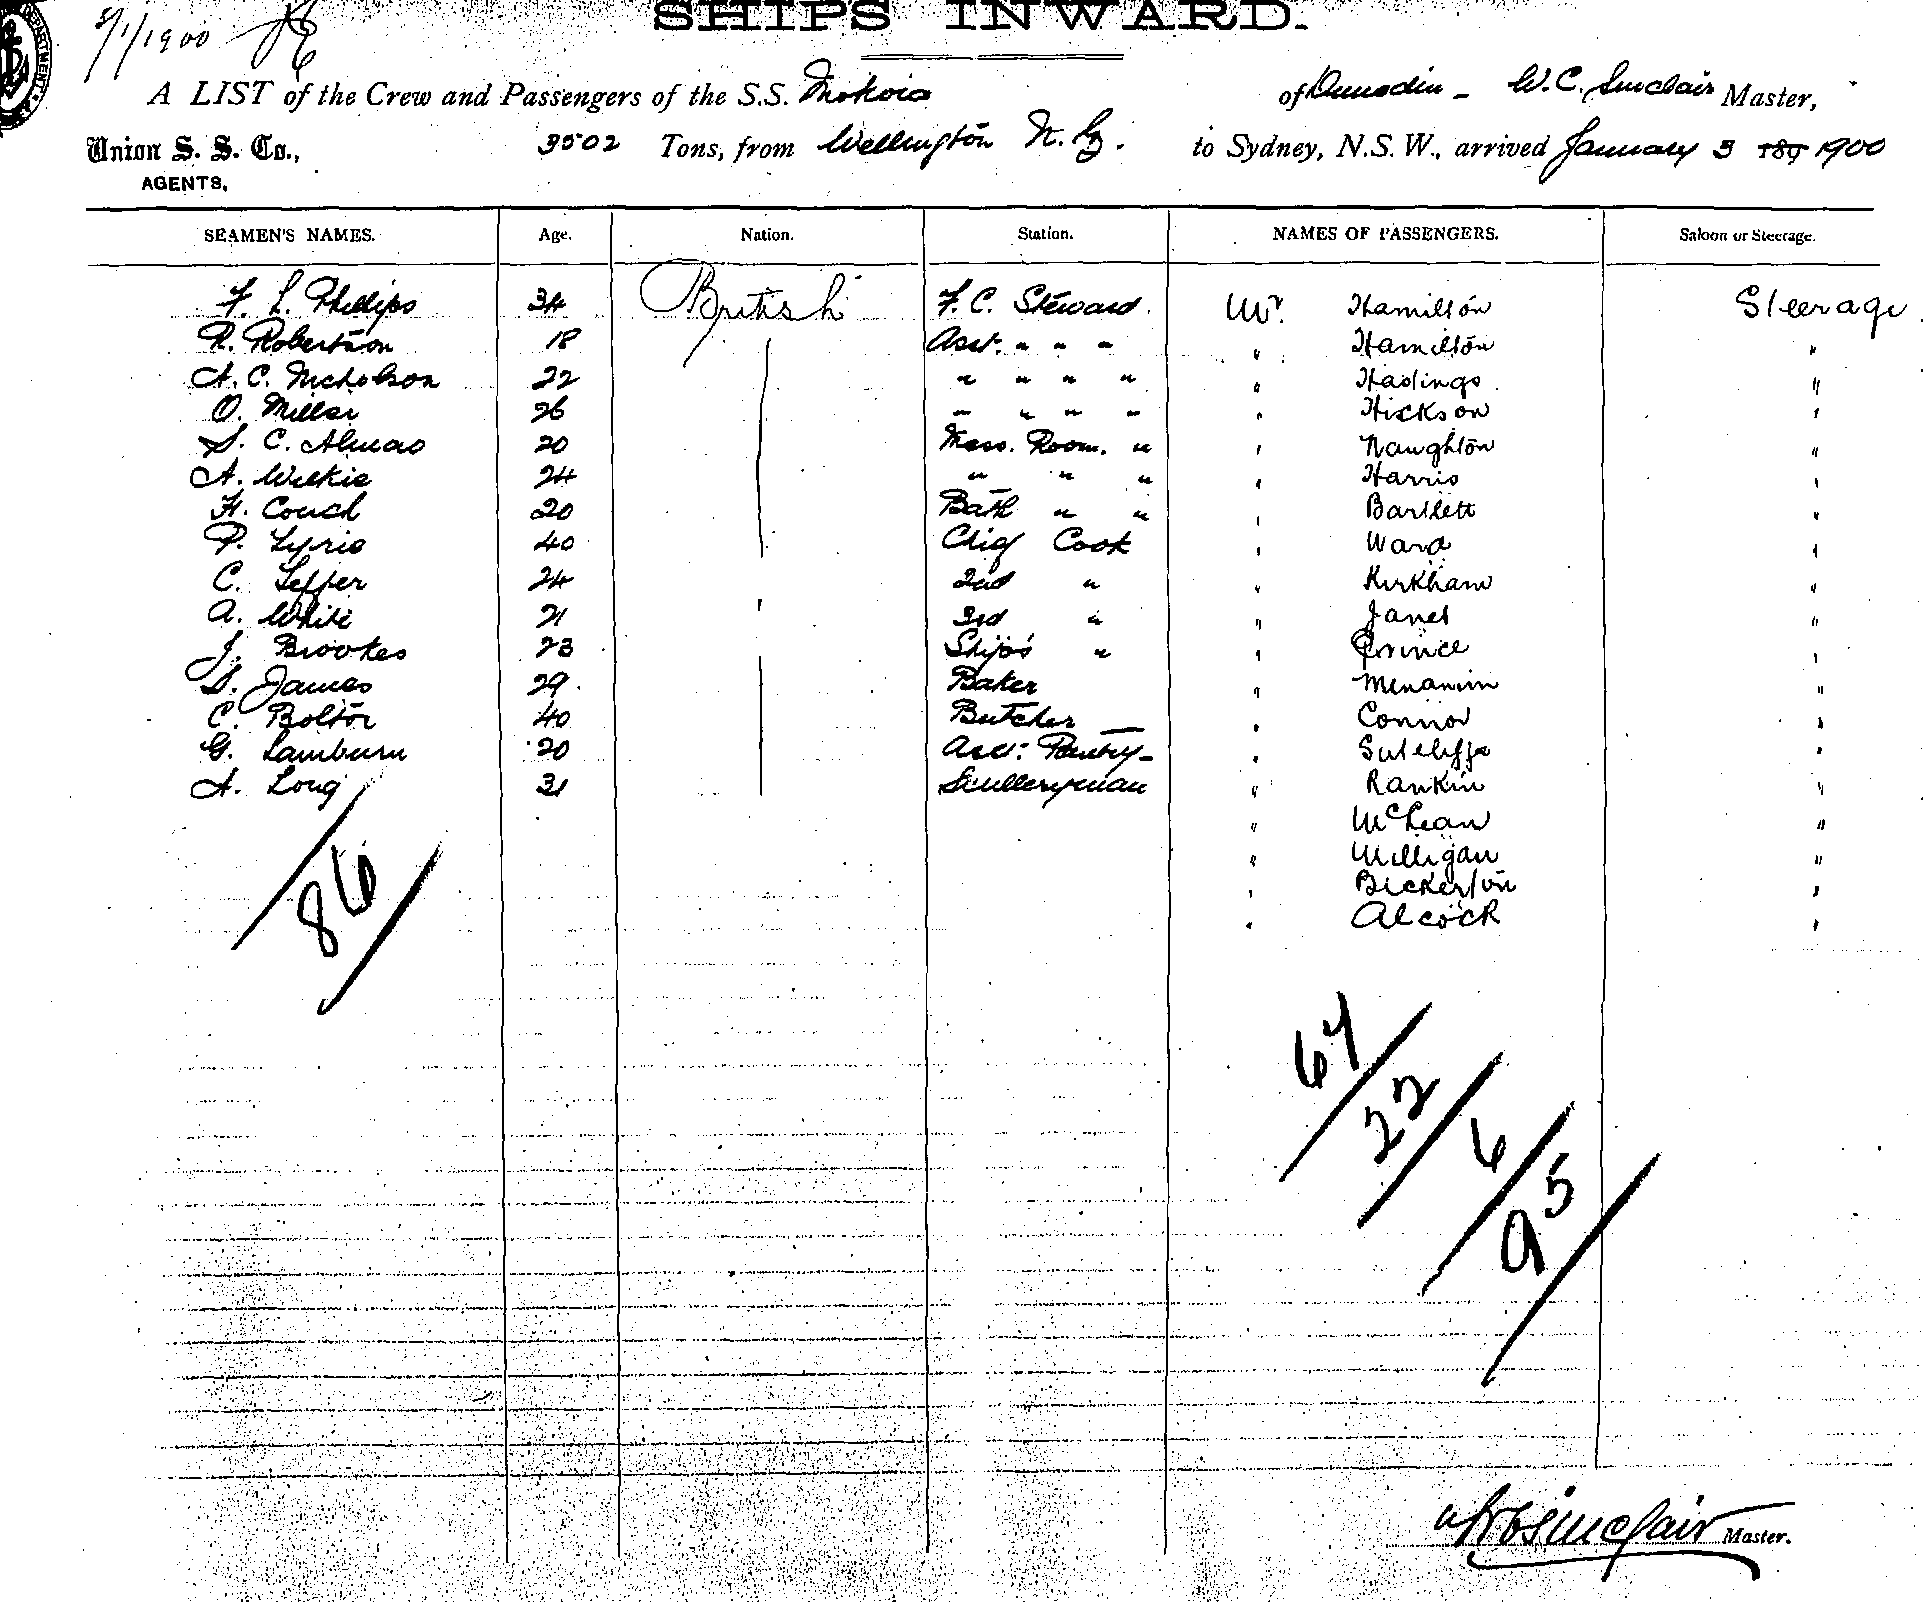 SHIPS INWARD.
3/1/1900
A LIST of the Crew and Passengers of the S.S. Mokoia of Dunedin - W.C. Sinclair Master,
Union S. S. Co., 3502 Tons, from Wellington N.Z. to Sydney, N.S.W., arrived January 3 189 1900
AGENTS,
SEAMEN'S NAMES. Age. Nation. Station. NAMES OF PASSENGERS. Saloon or Steerage.
F. L. Phillips 34 British F. C. Steward Mr. Hamilton Steerage
R. Robertson 18 Asst. " " " " Hamilton "
A. C. Nicholson 22 " " " " " Hastings "
O. Miller 26 " " " " " Hickson "
S. C. 20 Mess. Room. " " Naughton "
A. Wilkie 24 " " " " Harris "
H. Couch 20 Bath " " " Bartlett "
P. Lyris 40 Chief Cook " Ward "
C. Leffer 24 2nd " " Kirkham "
A. White 21 3rd " " Janes "
J. Brookes 23 Ship's " " Prince "
S. James 29 Baker " Menamin "
C. Bolton 40 Butcher " Connor "
G. Lamburn 20 Asst: Pantry- " Sutcliffe "
A. Long 31 Sculleryman " Rankin "
" McLean "
" Milligan "
" Bickerton "
" Alcock "
86
67
22
6
95
W C Sinclair Master.